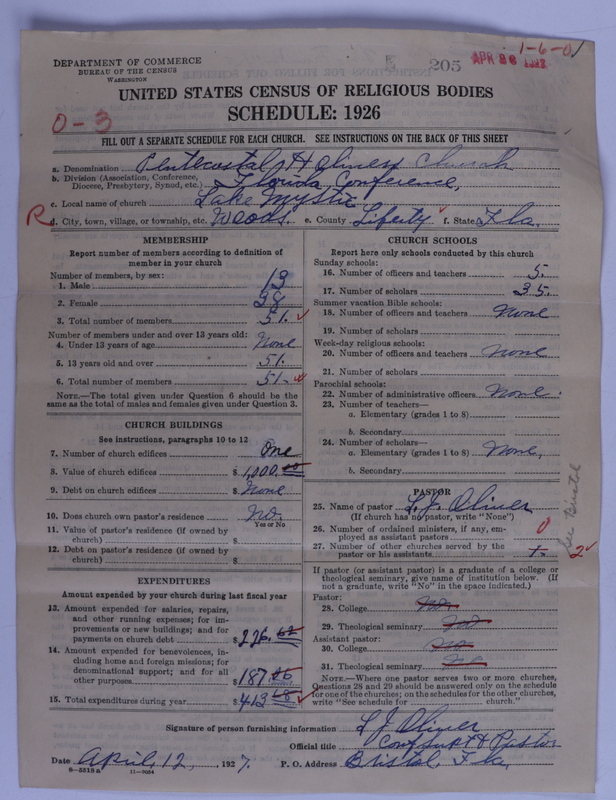 1-6-01
DEPARTMENT OF COMMERCE
BUREAU OF THE CENSUS
WASHINGTON
205
APR 26
UNITED STATES CENSUS OF RELIGIOUS BODIES
SCHEDULE: 1926
0-3
FILL OUT A SEPARATE SCHEDULE FOR EACH CHURCH. SEE INSTRUCTIONS ON THE BACK OF THIS SHEET
a. Denomination Pentecostal Holiness Church
b. Division (Association, Conference, Diocese, Presbytery, Synod, etc.) Florida Conference,
c. Local name of church Lake Mystic
R d. City, town, village, or township, etc. Woods. e. County Liberty f. State Fla.
MEMBERSHIP
Report number of members according to definition of member in your church
Number of members, by sex:
1. Male 13
2. Female 38
3. Total number of members 51.
Number of members under and over 13 years old:
4. Under 13 years of age None
5. 13 years old and over 51.
6. Total number of members 51.
NOTE.—The total given under Question 6 should be the same as the total of males and females given under Question 3.
CHURCH BUILDINGS
See instructions, paragraphs 10 to 12
7. Number of church edifices One
8. Value of church edifices $ 1,000.00
9. Debt on church edifices $ None
10. Does church own pastor's residence No.
Yes or No
11. Value of pastor's residence (if owned by church) $
12. Debt on pastor's residence (if owned by church) $
EXPENDITURES
Amount expended by your church during last fiscal year
13. Amount expended for salaries, repairs, and other running expenses; for improvements or new buildings; and for payments on church debt $ 226.
14. Amount expended for benevolences, including home and foreign missions; for denominational support; and for all other purposes $ 187
15. Total expenditures during year $ 413
CHURCH SCHOOLS
Report here only schools conducted by this church
Sunday schools:
16. Number of officers and teachers 5.
17. Number of scholars 35.
Summer vacation Bible schools:
18. Number of officers and teachers None
19. Number of scholars
Week-day religious schools:
20. Number of officers and teachers none
21. Number of scholars
Parochial schools:
22. Number of administrative officers None.
23. Number of teachers—
a. Elementary (grades 1 to 8)
b. Secondary
24. Number of scholars—
a. Elementary (grades 1 to 8) None,
b. Secondary
PASTOR
25. Name of pastor L. J. Oliver
(If church has no pastor, write "None")
26. Number of ordained ministers, if any, employed as assistant pastors 0
27. Number of other churches served by the pastor or his assistants 2
See Bristol
If pastor (or assistant pastor) is a graduate of a college or theological seminary, give name of institution below. (If not a graduate, write "No" in the space indicated.)
Pastor:
28. College No.
29. Theological seminary No
Assistant pastor:
30. College No
31. Theological seminary No
NOTE.—Where one pastor serves two or more churches, Questions 28 and 29 should be answered only on the schedule for one of the churches; on the schedules for the other churches, write "See schedule for church."
Signature of person furnishing information L J Oliver
Official title Conf. Supt & Pastor
Date April, 12, 1927. P. O. Address Bristol, Fla.
8-5518a 11-9084